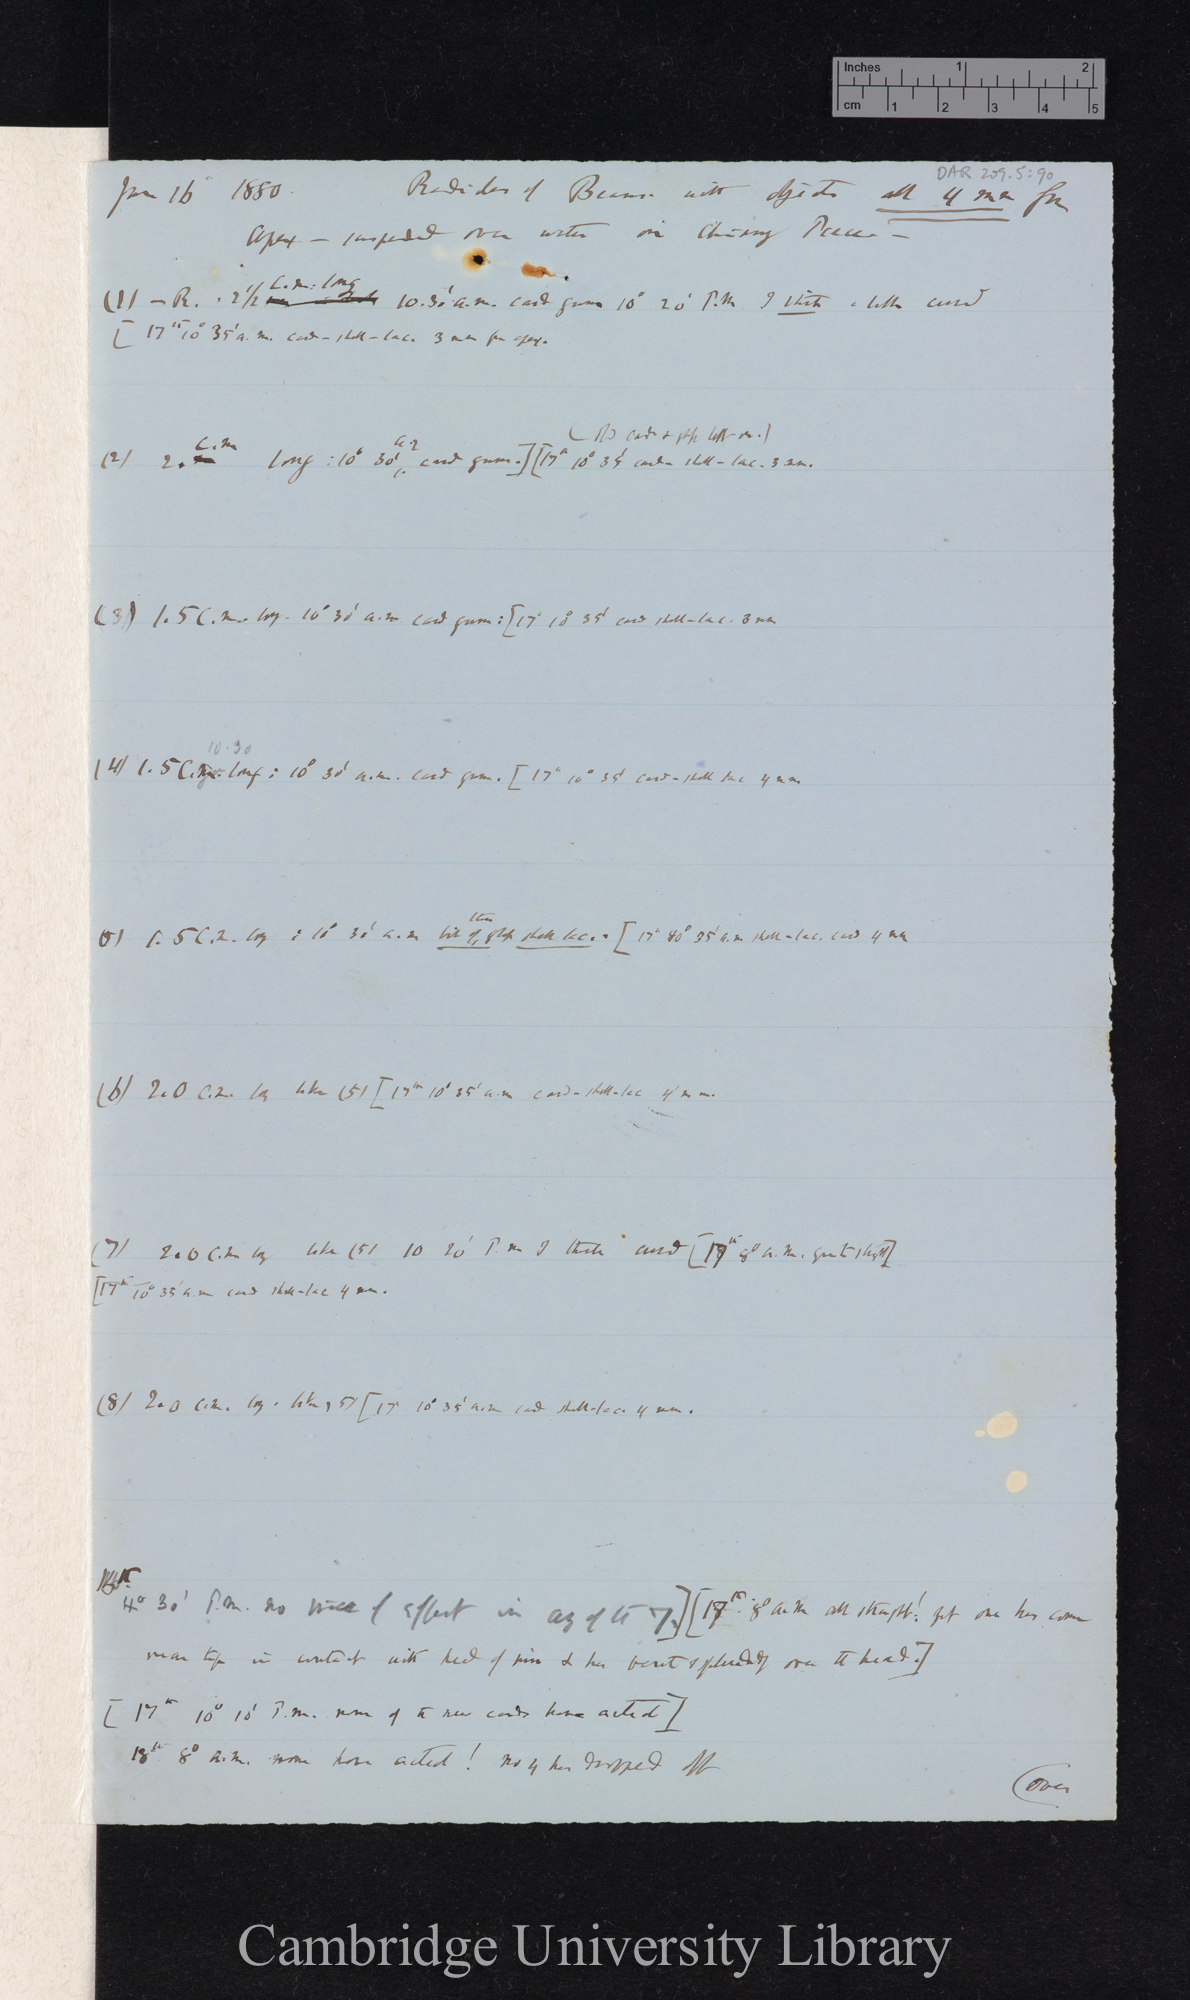 Inches 1 2
cm 1 2 3 4 5
DAR 209.5:90
Jan 16 1880. Radicles of Beans with objects all 4 mm from
apex — suspended over water on Chimney Piece —
C.m. long
(1) — R. . 2 1/2 10.30' a.m. card gum 10° 20' P.M I think a little curved
[17th 10° 35' a.m. card – shell – lac. 3 mm fr apex.
C.m a.m
(2) 2. long : 10° 30' card gum.] [17th 10° 35' card – shell – lac. 3 mm.
(3) 1.5 C.m. long. 10° 30' a.m card gum : [17th 10° 35' card shell-lac. 3 mm
10.30
(4) 1.5 C.m. long : 10° 30' a.m. card gum. [17th 10° 35' card – shell lac 4 mm
(5) 1.5 C.m. long : 10° 30' a.m bit of glass shell lac. [17th 10° 35' a.m shell-lac. card 4 mm
(6) 2.0 C.m. long like (5) [17th 10° 35' a.m card-shell-lac 4 mm.
(7) 2.0 C.m long like (5) 10 20' P.m I think curved [17th 8° a.m. quite straight]
[17th 10° 35' a.m card shell-lac 4 mm.
(8) 2.0 C.m. long. like (5) [17th 10° 35' a.m card shell-lac. 4 mm.
16th
4° 30' P.m. no trace of effect in any of the 7.] [17th. 8° a.m all straight! yet one has come
near tip in contact with head of pin & has bent splendidly over the head.]
[17th 10° 10' P.m. none of the new cards have acted]
18th 8° a.m. none have acted! no 4 has dropped off
(over
Cambridge University Library